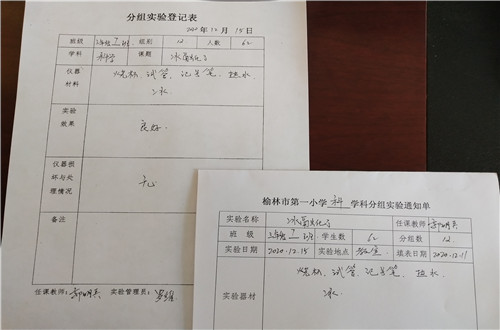 分组实验登记表
2020年12月15日
班级 三年级 班 组别 12 人数 62
学科 科学 课题 冰
仪器材料 烧杯、试管、记号笔、热水、
冰.
实验效果 良好.
仪器损坏与处理情况
备注
任课教师: 实验管理员:
榆林市第一小学 科 学科分组实验通知单
实验名称 冰 任课教师
班级 三年级 班 学生数 62 分组数 12
实验日期 2020.12.15 实验地点 教室 填表日期 2020.12.11
实验器材 烧杯、试管、记号笔、热水
冰.